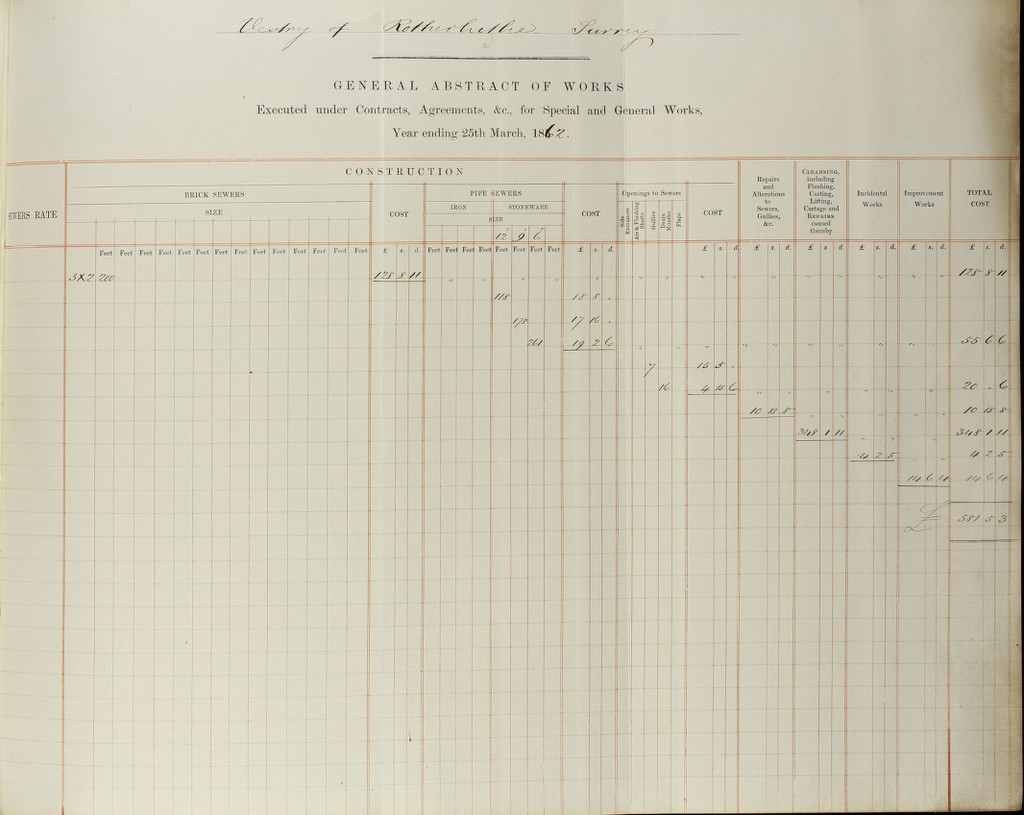 Vestry of Rotherhithe Surrey
GENERAL ABSTRACT OF WORKS
Executed under Contracts, Agreements, &c., for Special and General Works,
Year ending 25th March, 1862.
SEWERS RATE
CONSTRUCTION
BRICK SEWERS
SIZE
COST
PIPE SEWERS
IRON STONEWARE
SIZE
12 9 6
COST
Openings to Sewers
Side Entrances
Air & Flushing Shafts
Gullies
Drain Mouths
Flaps
COST
Repairs
and
Alterations
to
Sewers,
Gullies,
&c.
CLEANSING,
including
Flushing,
Casting,
Lifting,
Cartage and
REPAIRS
caused
thereby
Incidental
Works
Improvement
Works
TOTAL
COST
Feet Feet Feet Feet Feet Feet Feet Feet Feet Feet Feet Feet Feet Feet £ s. d. Feet Feet Feet Feet Feet Feet Feet Feet £ s. d. £ s. d. £ s. d. £ s. d. £ s. d. £ s. d. £ s. d.
3X2 200 128 8 11 " " " " " " " " " 128 8 11
118 18 8 .
178 17 16 .
261 19 2 6 " " " " " " " " 55 6 6
7 15 5 .
16 4 15 6 " " " " " " 20 " 6
10 18 8 " " " " 10 18 8
348 1 11 " " " 348 1 11
4 2 5 " " 4 2 5
14 6 4 14 6 4
£ 581 5 3